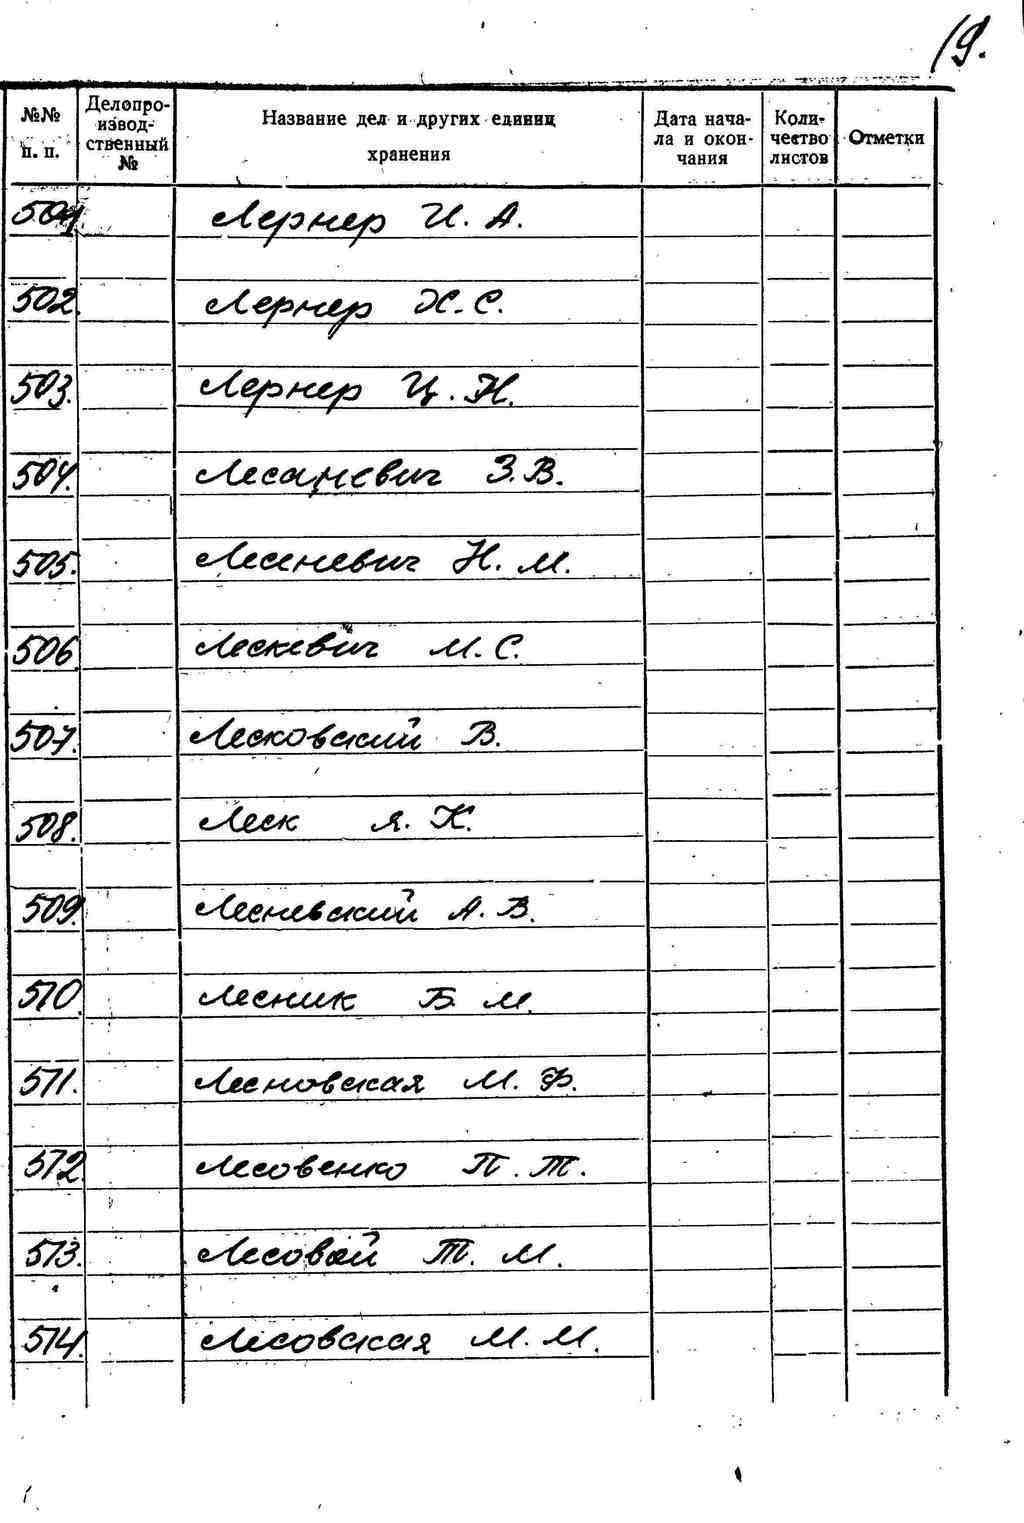 19.
№№ п. п. Делопроизводственный № Название дел и других единиц хранения Дата начала и окончания Количество листов Отметки
501. Лернер И. А.
502. Лернер Х. С.
503. Лернер Ц. Н.
504. Лесаневич З. В.
505. Лесеневич Н. М.
506. Лескевич М. С.
507. Лесковский В.
508. Леск Я. К.
509. Лесневский А. В.
510. Лесник Б. М.
511. Лесновская М. Ф.
512. Лесовенко П. Т.
513. Лесовой Т. М.
514. Лесовская М. М.